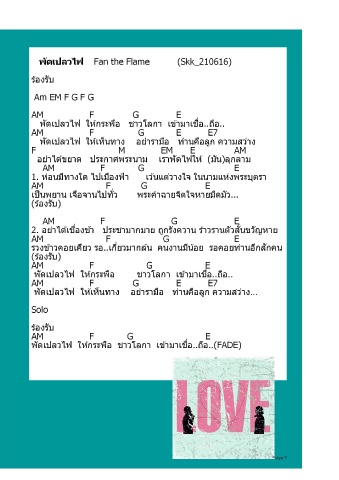 พัดเปลวไฟ Fan the Flame (Skk_210616)
ร้องรับ
Am EM F G F G
AM F G E
พัดเปลวไฟ ให้กระพือ ชาวโลกา เข้ามาเชื่อ..ถือ..
AM F G E E7
พัดเปลวไฟ ให้เห็นทาง อย่ารามือ ท่านคือลูก ความสว่าง
F M EM E AM
อย่าได้ขยาด ประกาศพระนาม เราพัดไฟให้ (มัน)ลุกลาม
AM F G E
1. ห่อนมีทางใด ไปเมืองฟ้า เว้นแต่วางใจ ในนามแห่งพระบุตรา
AM F G E
เป็นพยาน เจือจานไปทั่ว พระคำฉายจิตใจหายมืดมัว...
(ร้องรับ)
AM F G E
2. อย่าได้เขื่องช้า ประชามากมาย ถูกรังควาน ร้าวรานตัวสั่นขวัญหาย
AM F G E
รวงข้าวคอยเคียว รอ..เกี่ยวมากล้น คนงานมีน้อย รอคอยท่านอีกสักคน
(ร้องรับ)
AM F G E
พัดเปลวไฟ ให้กระพือ ชาวโลกา เข้ามาเชื่อ..ถือ..
AM F G E E7
พัดเปลวไฟ ให้เห็นทาง อย่ารามือ ท่านคือลูก ความสว่าง...
Solo
ร้องรับ
AM F G E
พัดเปลวไฟ ให้กระพือ ชาวโลกา เข้ามาเชื่อ..ถือ..(FADE)
LOVE